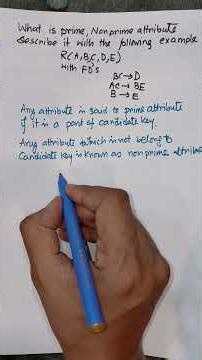 What is prime, Nonprime attribute
describe it with the following example
R(A,B,C,D,E)
with FD's
BC→D
AC→BE
B→E
Any attribute is said to prime attribute
if it is a part of candidate key.
Any attribute which is not belong to
Candidate key is known as non prime attribute